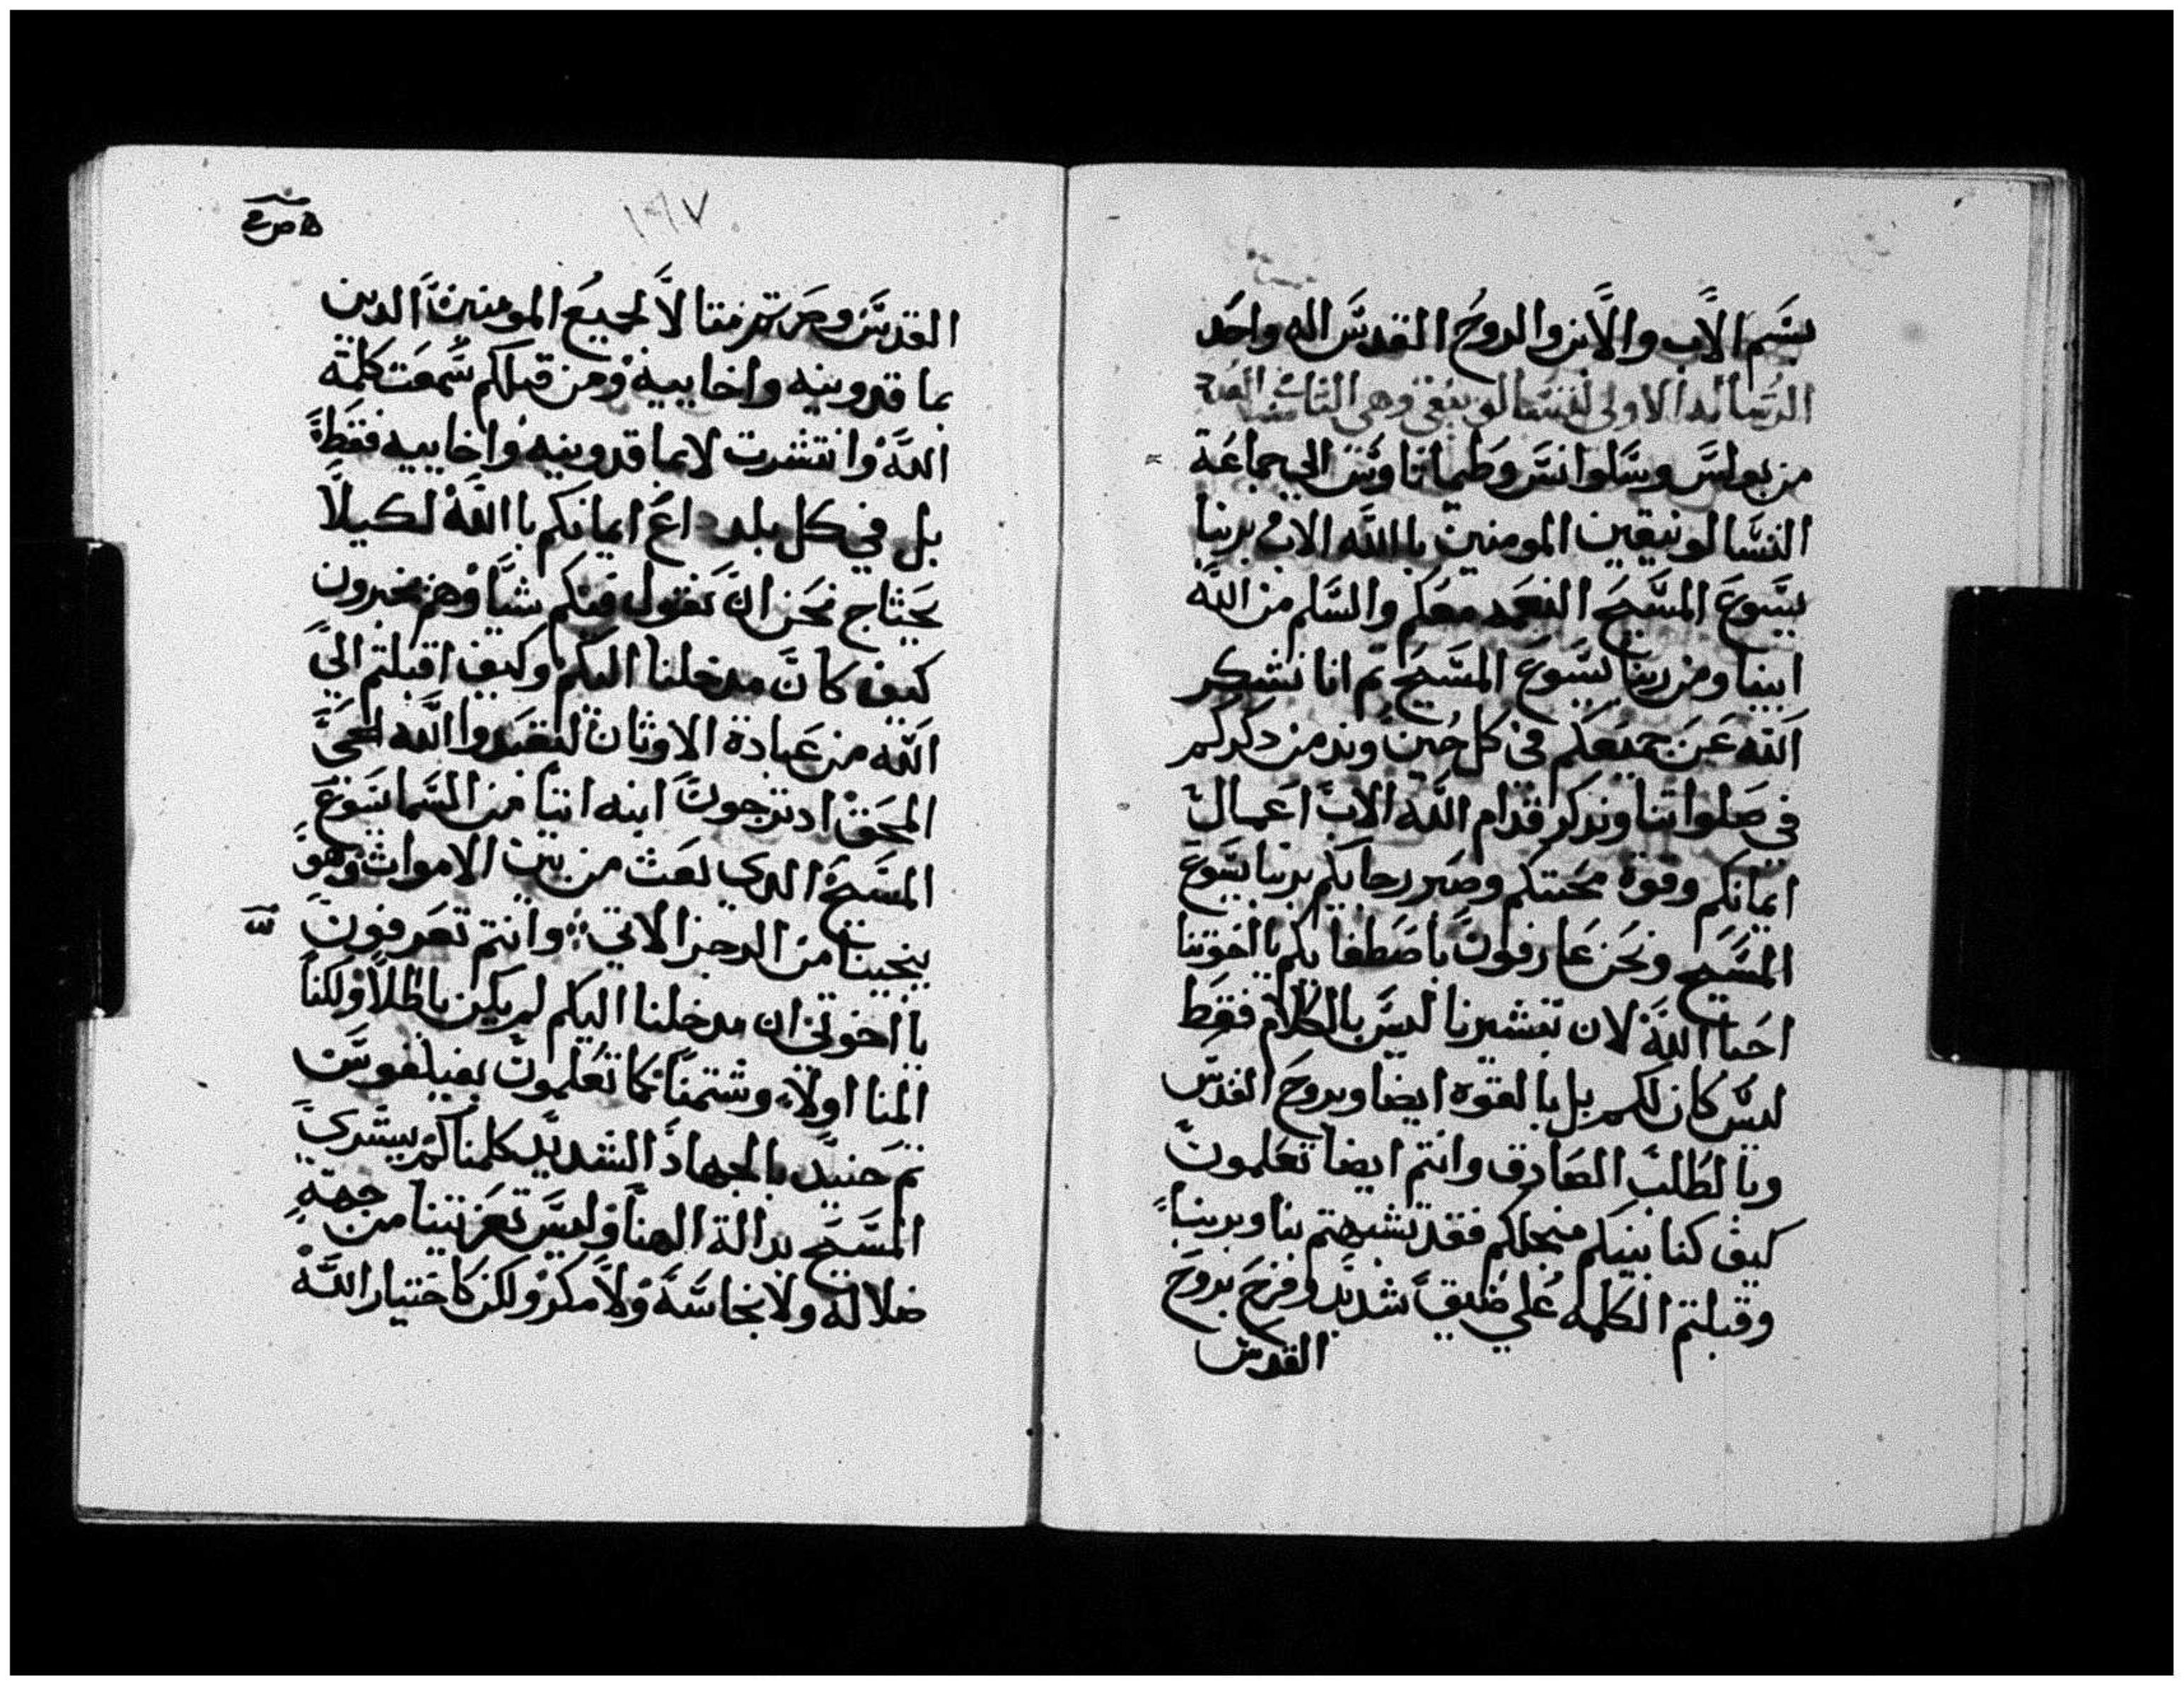 بسم الاب والابن والروح القدس اله واحد
الرساله الاولى
من بولس وسلوانس وطيماتاوس الي جماعة
التسالونيقين المومنين بالله الاب بربنا
يسوع المسيح النعمه معكم والسلم من الله
ابينا ومن ربنا يسوع المسيح ثم انا نشكر
الله عن جميعكم في كل حين وندمن دكركم
في صلواتنا وندكر قدام الله الاب اعمال
ايمانكم وقوة محبتكم وصبر رجايكم بربنا يسوع
المسيح ونحن عارفون باصطفايكم يا اخوتنا
احبا الله لان تبشيرنا ليس بالكلام فقط
ليس كان لكم بل بالقوه ايضا وبروح القدس
وبالطلب الصادق وانتم ايضا تعلمون
كيف كنا بينكم من اجلكم فقد تشبهتم بنا وبربنا
وقبلتم الكلمه علي ضيق شديد وفرح بروح
القدس
١٩٧
القدس وصرتم متالا لجميع المومنين الدين
بما قدونيه واخاييه ومن قبلكم سمعت كلمة
الله وانتشرت لا بما قدونيه واخاييه فقط
بل في كل بلد داع ايمانكم باالله لكيلا
نحتاج نحن ان نقول فيكم شيا وهم يخبرون
كيف كان مدخلنا اليكم وكيف اقبلتم الي
الله من عبادة الاوثان لتعبدوا الله الحي
المحق ادترجون ابنه اتيا من السما يسوع
المسيح الدي بعث من بين الاموات وهو
ينجينا من الرجز الاتي وانتم تعرفون
يا اخوتي ان مدخلنا اليكم لم يكن باطلا ولكنا
المنا اولا وشتمنا كما تعلمون بفيلفوس
ثم حنيد بالجهاد الشديد كلمناكم ببشري
المسيح بدالة الهنا وليس تعزيتنا من جهة
ضلاله ولا نجاسه ولا مكر ولكن كاختيار الله